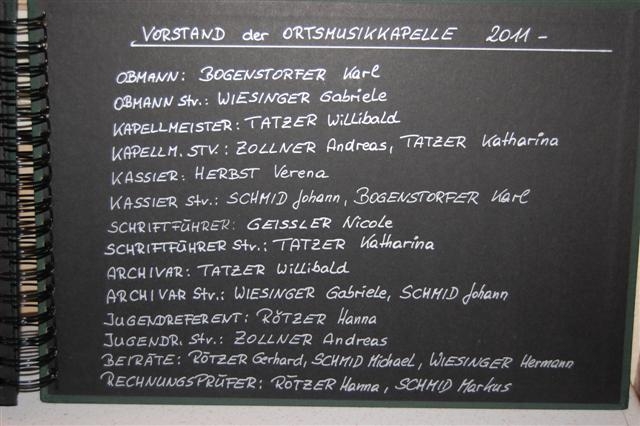 VORSTAND der ORTSMUSIKKAPELLE 2011 -
OBMANN: BOGENSTORFER Karl
OBMANN Stv.: WIESINGER Gabriele
KAPELLMEISTER: TATZER Willibald
KAPELLM. STV.: ZOLLNER Andreas, TATZER Katharina
KASSIER: HERBST Verena
KASSIER Stv.: SCHMID Johann, BOGENSTORFER Karl
SCHRIFTFÜHRER: GEISSLER Nicole
SCHRIFTFÜHRER Stv.: TATZER Katharina
ARCHIVAR: TATZER Willibald
ARCHIVAR Stv.: WIESINGER Gabriele, SCHMID Johann
JUGENDREFERENT: RÖTZER Hanna
JUGENDR. Stv.: ZOLLNER Andreas
BEIRÄTE: RÖTZER Gerhard, SCHMID Michael, WIESINGER Hermann
RECHNUNGSPRÜFER: RÖTZER Hanna, SCHMID Markus